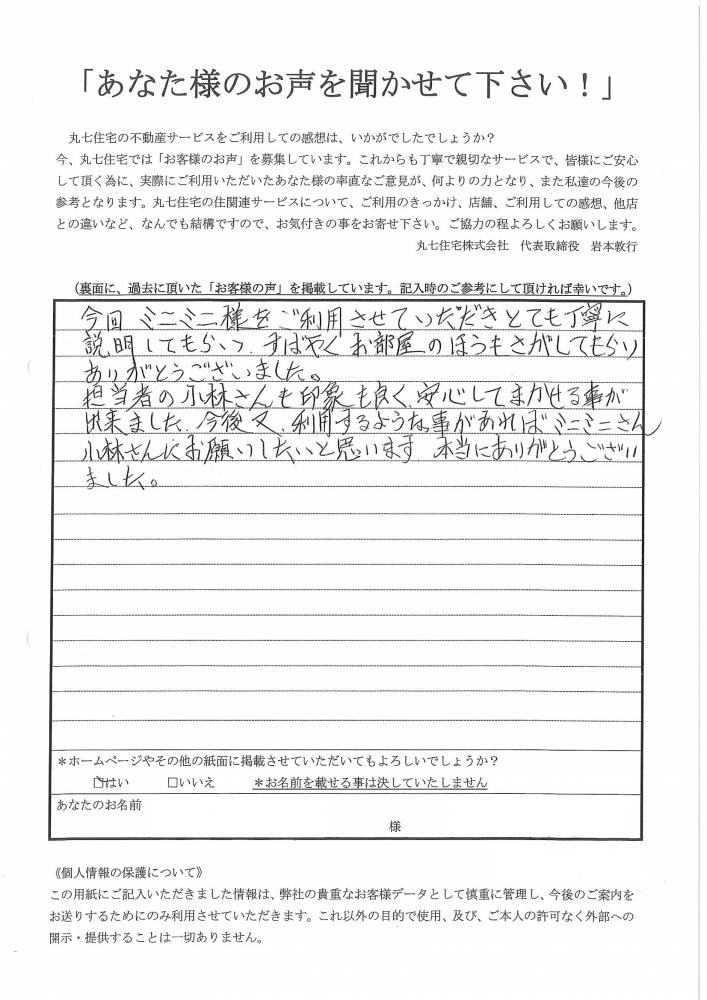 「あなた様のお声を聞かせて下さい！」
丸七住宅の不動産サービスをご利用しての感想は、いかがでしたでしょうか？
今、丸七住宅では「お客様のお声」を募集しています。これからも丁寧で親切なサービスで、皆様にご安心
して頂く為に、実際にご利用いただいたあなた様の率直なご意見が、何よりの力となり、また私達の今後の
参考となります。丸七住宅の住関連サービスについて、ご利用のきっかけ、店舗、ご利用しての感想、他店
との違いなど、なんでも結構ですので、お気付きの事をお寄せ下さい。ご協力の程よろしくお願いします。
丸七住宅株式会社　代表取締役　岩本敦行
（裏面に、過去に頂いた「お客様の声」を掲載しています。記入時のご参考にして頂ければ幸いです。）
今回 ミニミニ様をご利用させていただきとても丁寧に
説明してもらいつ、すばやくお部屋のほうもさがしてもらい
ありがとうございました。
担当者の小林さんも印象も良く、安心してまかせる事が
出来ました、今後又、利用するような事があればミニミニさん
小林さんにお願いしたいと思います 本当にありがとうござい
ました。
＊ホームページやその他の紙面に掲載させていただいてもよろしいでしょうか？
☑はい　□いいえ　＊お名前を載せる事は決していたしません
あなたのお名前
様
《個人情報の保護について》
この用紙にご記入いただきました情報は、弊社の貴重なお客様データとして慎重に管理し、今後のご案内を
お送りするためにのみ利用させていただきます。これ以外の目的で使用、及び、ご本人の許可なく外部への
開示・提供することは一切ありません。